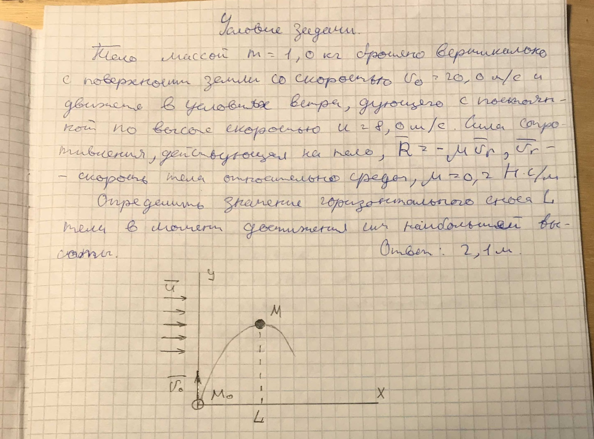 Условие задачи.
Тело массой m = 1,0 кг брошено вертикально
с поверхности земли со скоростью v₀ = 20,0 м/с и
движется в условиях ветра, дующего с постоян-
ной по высоте скоростью u = 8,0 м/с. Сила сопро-
тивления, действующая на тело, R̅ = -μv̅r, v̅r -
- скорость тела относительно среды, μ = 0,2 Н·с/м
Определить значение горизонтального сноса L
тела в момент достижения им наибольшей вы-
соты. Ответ: 2,1 м.
y
u̅
M
v̅₀
M₀
x
L